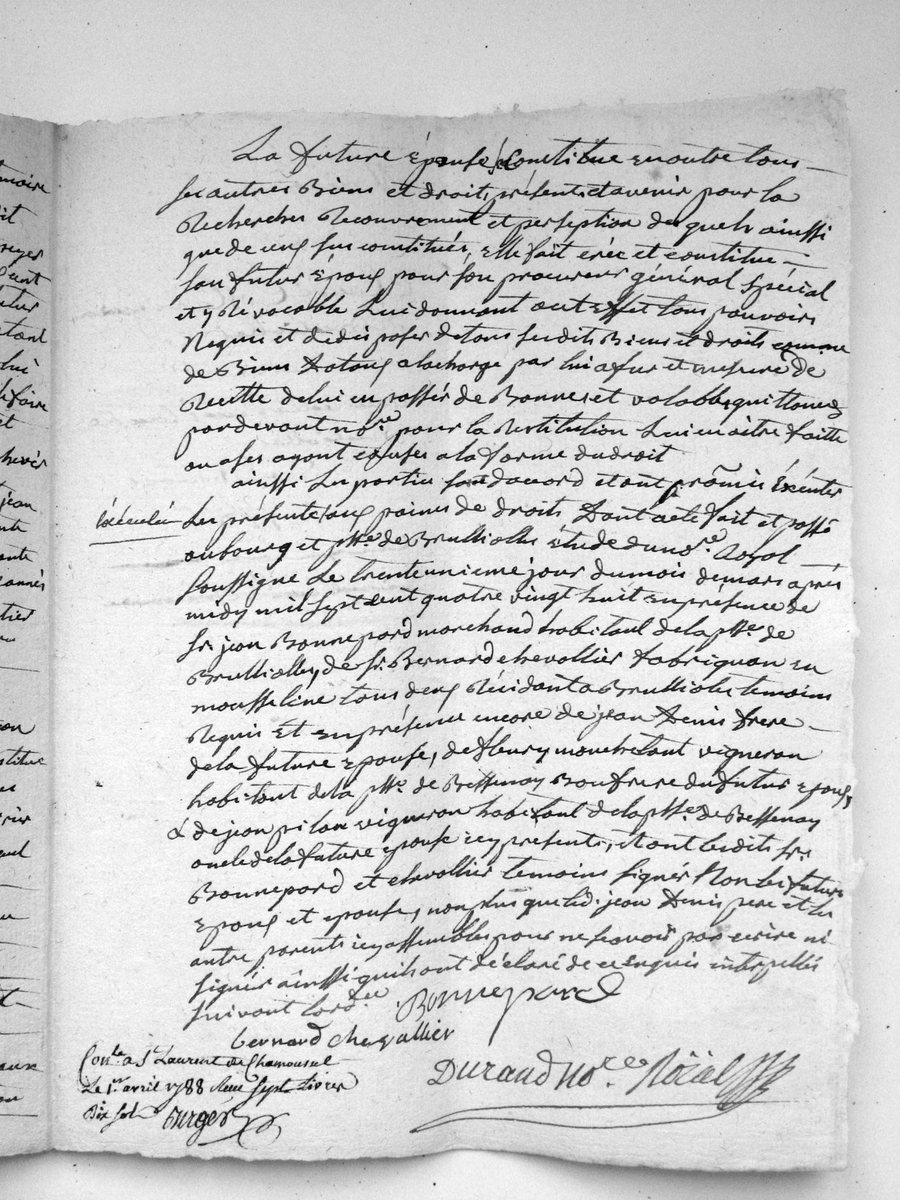 La future épouse se Constitue en outre tous
ses autres Biens et droits présents et avenir pour la
Recherches Recouvrement et perseption desquels ainssi
que de ceux sus constitués, elle fait crée et constitue
son futur Epoux pour son procureur général spécial
et yrrévocable Lui donnant aut effet tous pouvoirs
Requis et de disposer de tous sesdits Biens et droits comme
de Biens Dotaux a la charge par lui a fur et mesure de
Recette de lui en passér de Bonnes et valables quittances
pardevant no.re pour la Restitution Lui en aitre faitte
ou a ses ayant causes a la forme du droit
ainssi Les parties sont d'acord et ont promis Exécuter
Les présentes aux paines de droits Dont acte fait et passé
au bourg et psse de Brullioles étude du no.re Royal
soussigné Le trente unieme jour du mois de mars après
midy mil sept cent quatre vingt huit en présence de
sr. jean Bonnepard marchand habitant de la psse de
Brullioles, de sr. Bernard chevallier fabriquan en
mousseline tous deux Résidant a Brullioles temoins
Requis Et en présence encore de jean Denis frere
de la future epouse, de fleury vigneron
habitant de la psse de Bessenay Baufrere du futur epoux
& de jean pilon vigneron habitant de la psse de Bessenay
oncle de la future epouse icy présents, et ont lesdits srs
Bonnepard et chevallier temoins signés Non les futurs
epoux et epouse, non plus que led. jean Denis pere et les
autre parents icy assemblés pour ne scavoir pas ecrire ni
signér ainssi quils ont déclaré de ce enquis interpellés
suivant lord.ce
Exécuter
Bonnepard
bernard chevallier
Con.le a St Laurent de Chamousset
Le 1.er avril 1788 Reçu sept Livres
Dix sols
Durand no.re Roial